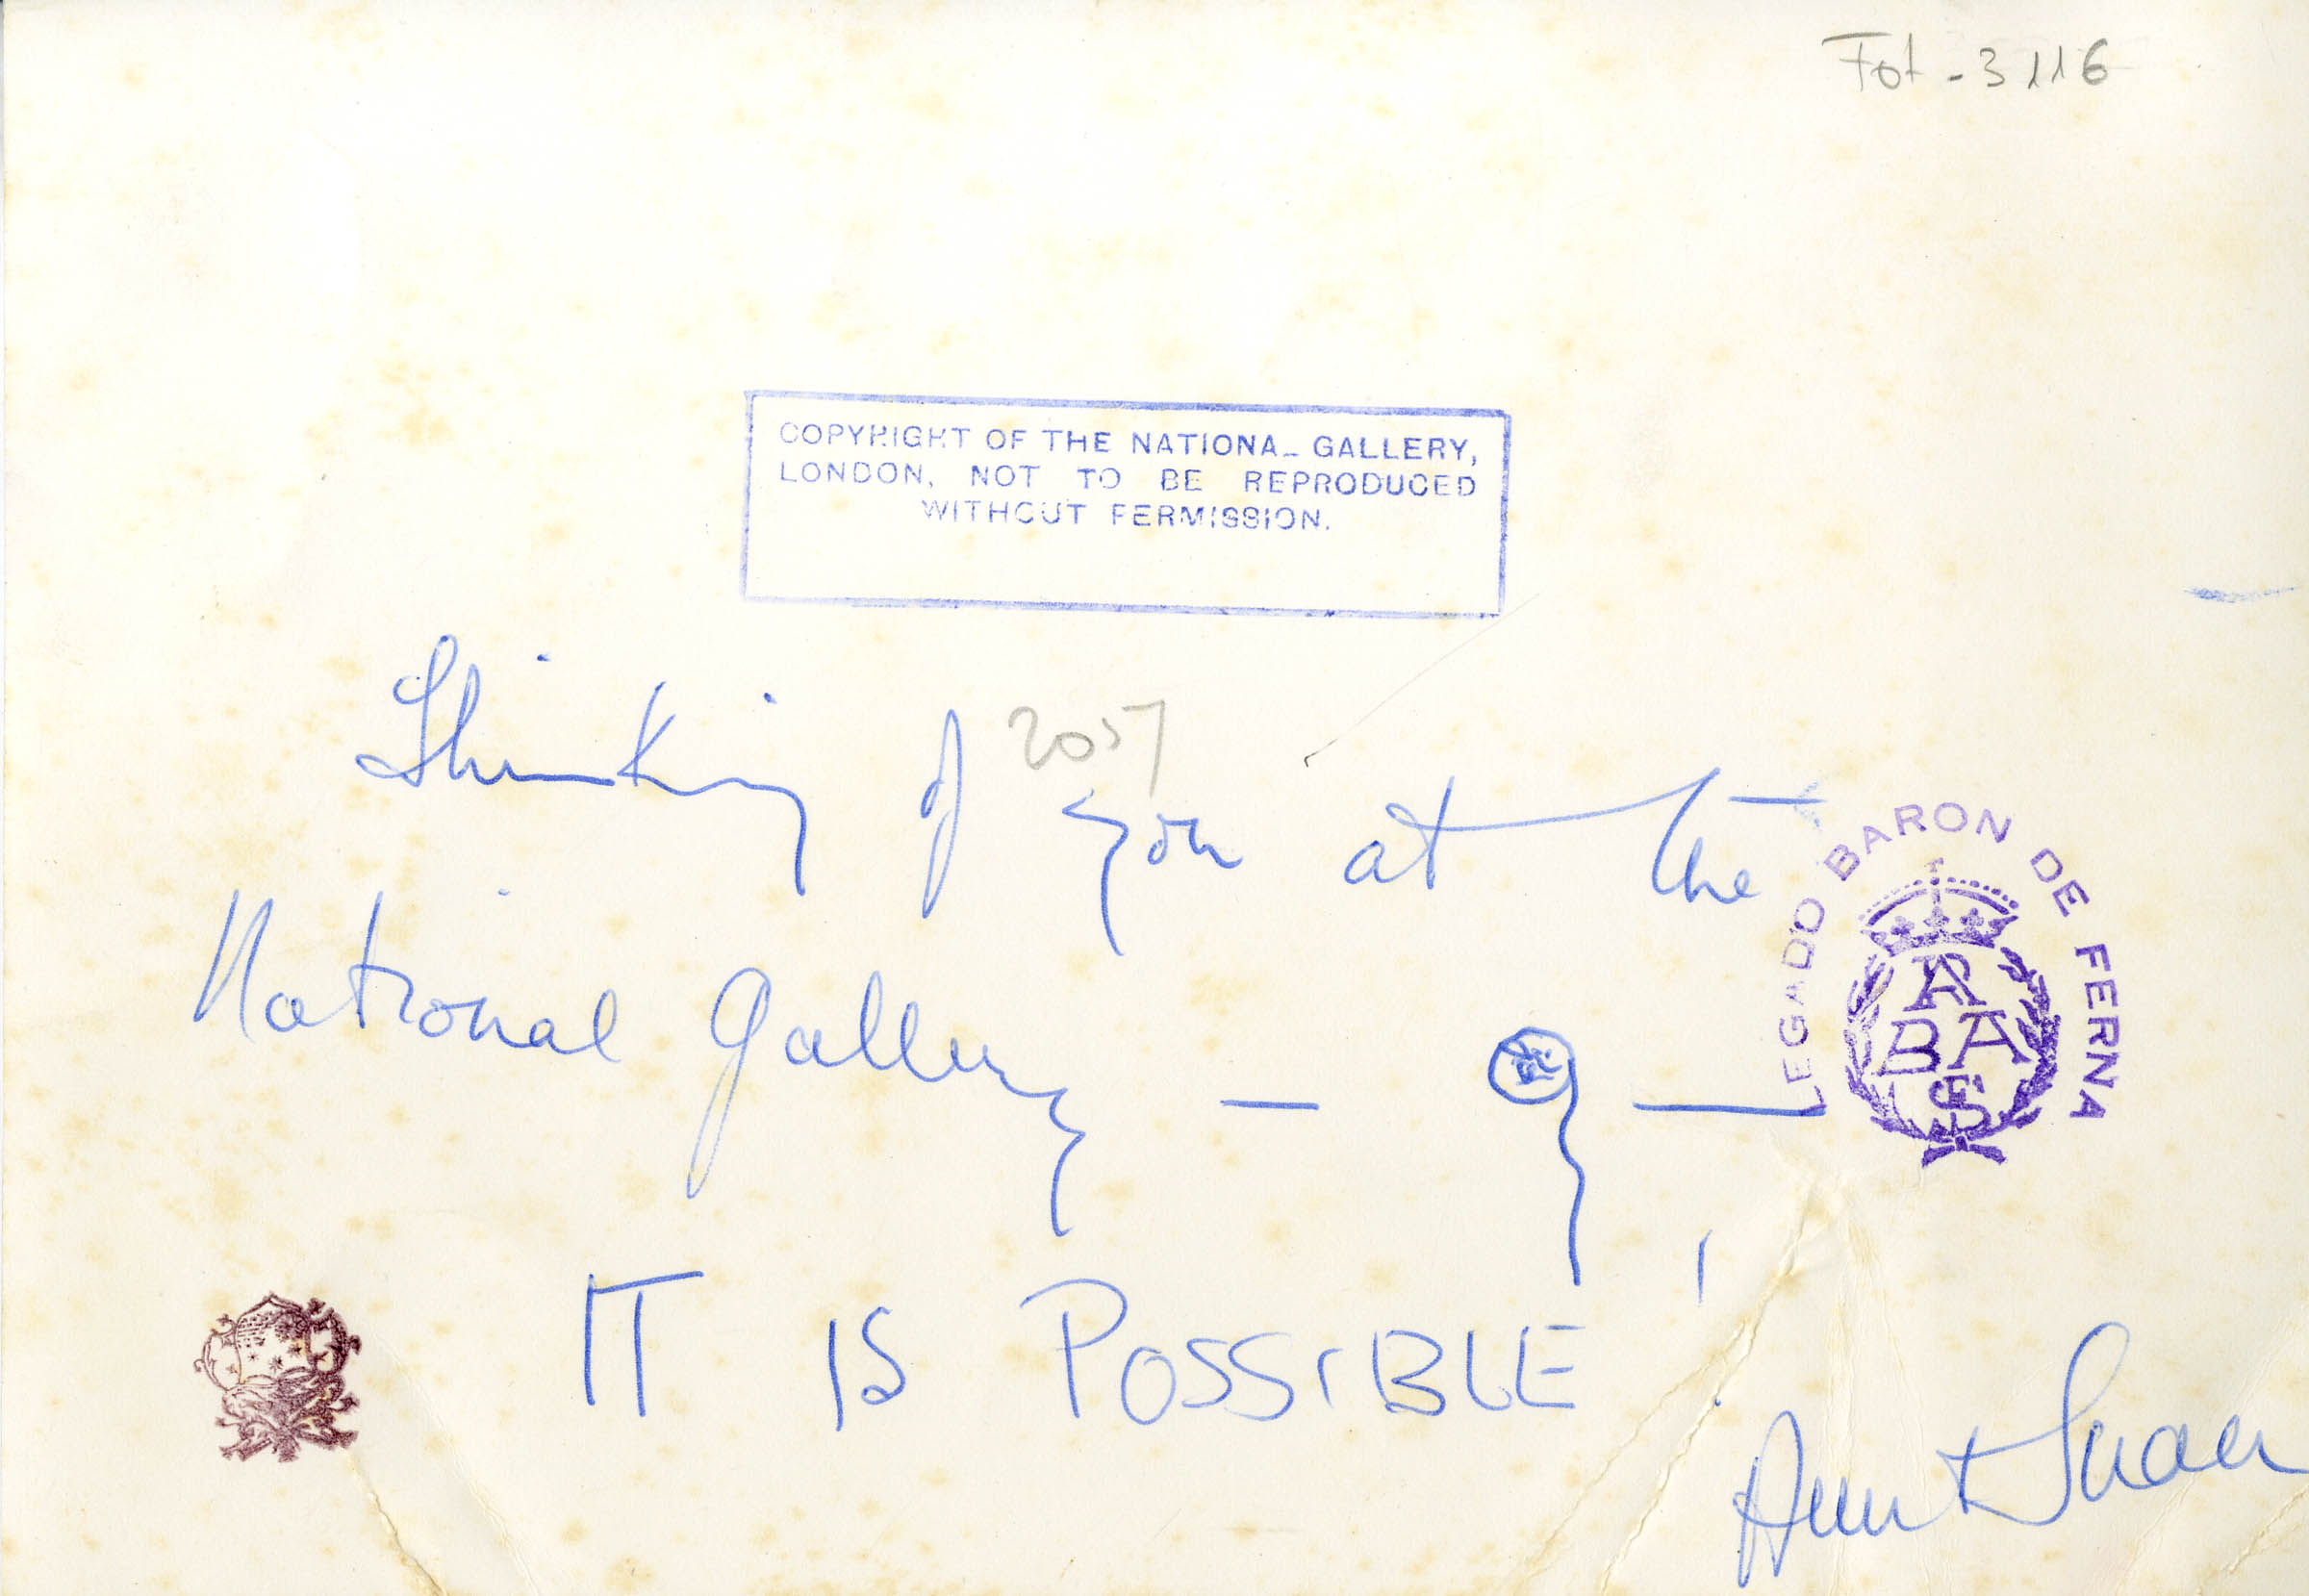 Fot - 3116
COPYRIGHT OF THE NATIONAL GALLERY,
LONDON, NOT TO BE REPRODUCED
WITHOUT PERMISSION.
2057
Thinking of you at the
LEGADO BARON DE FERNA
RABAS
National Gallery —
IT IS POSSIBLE!